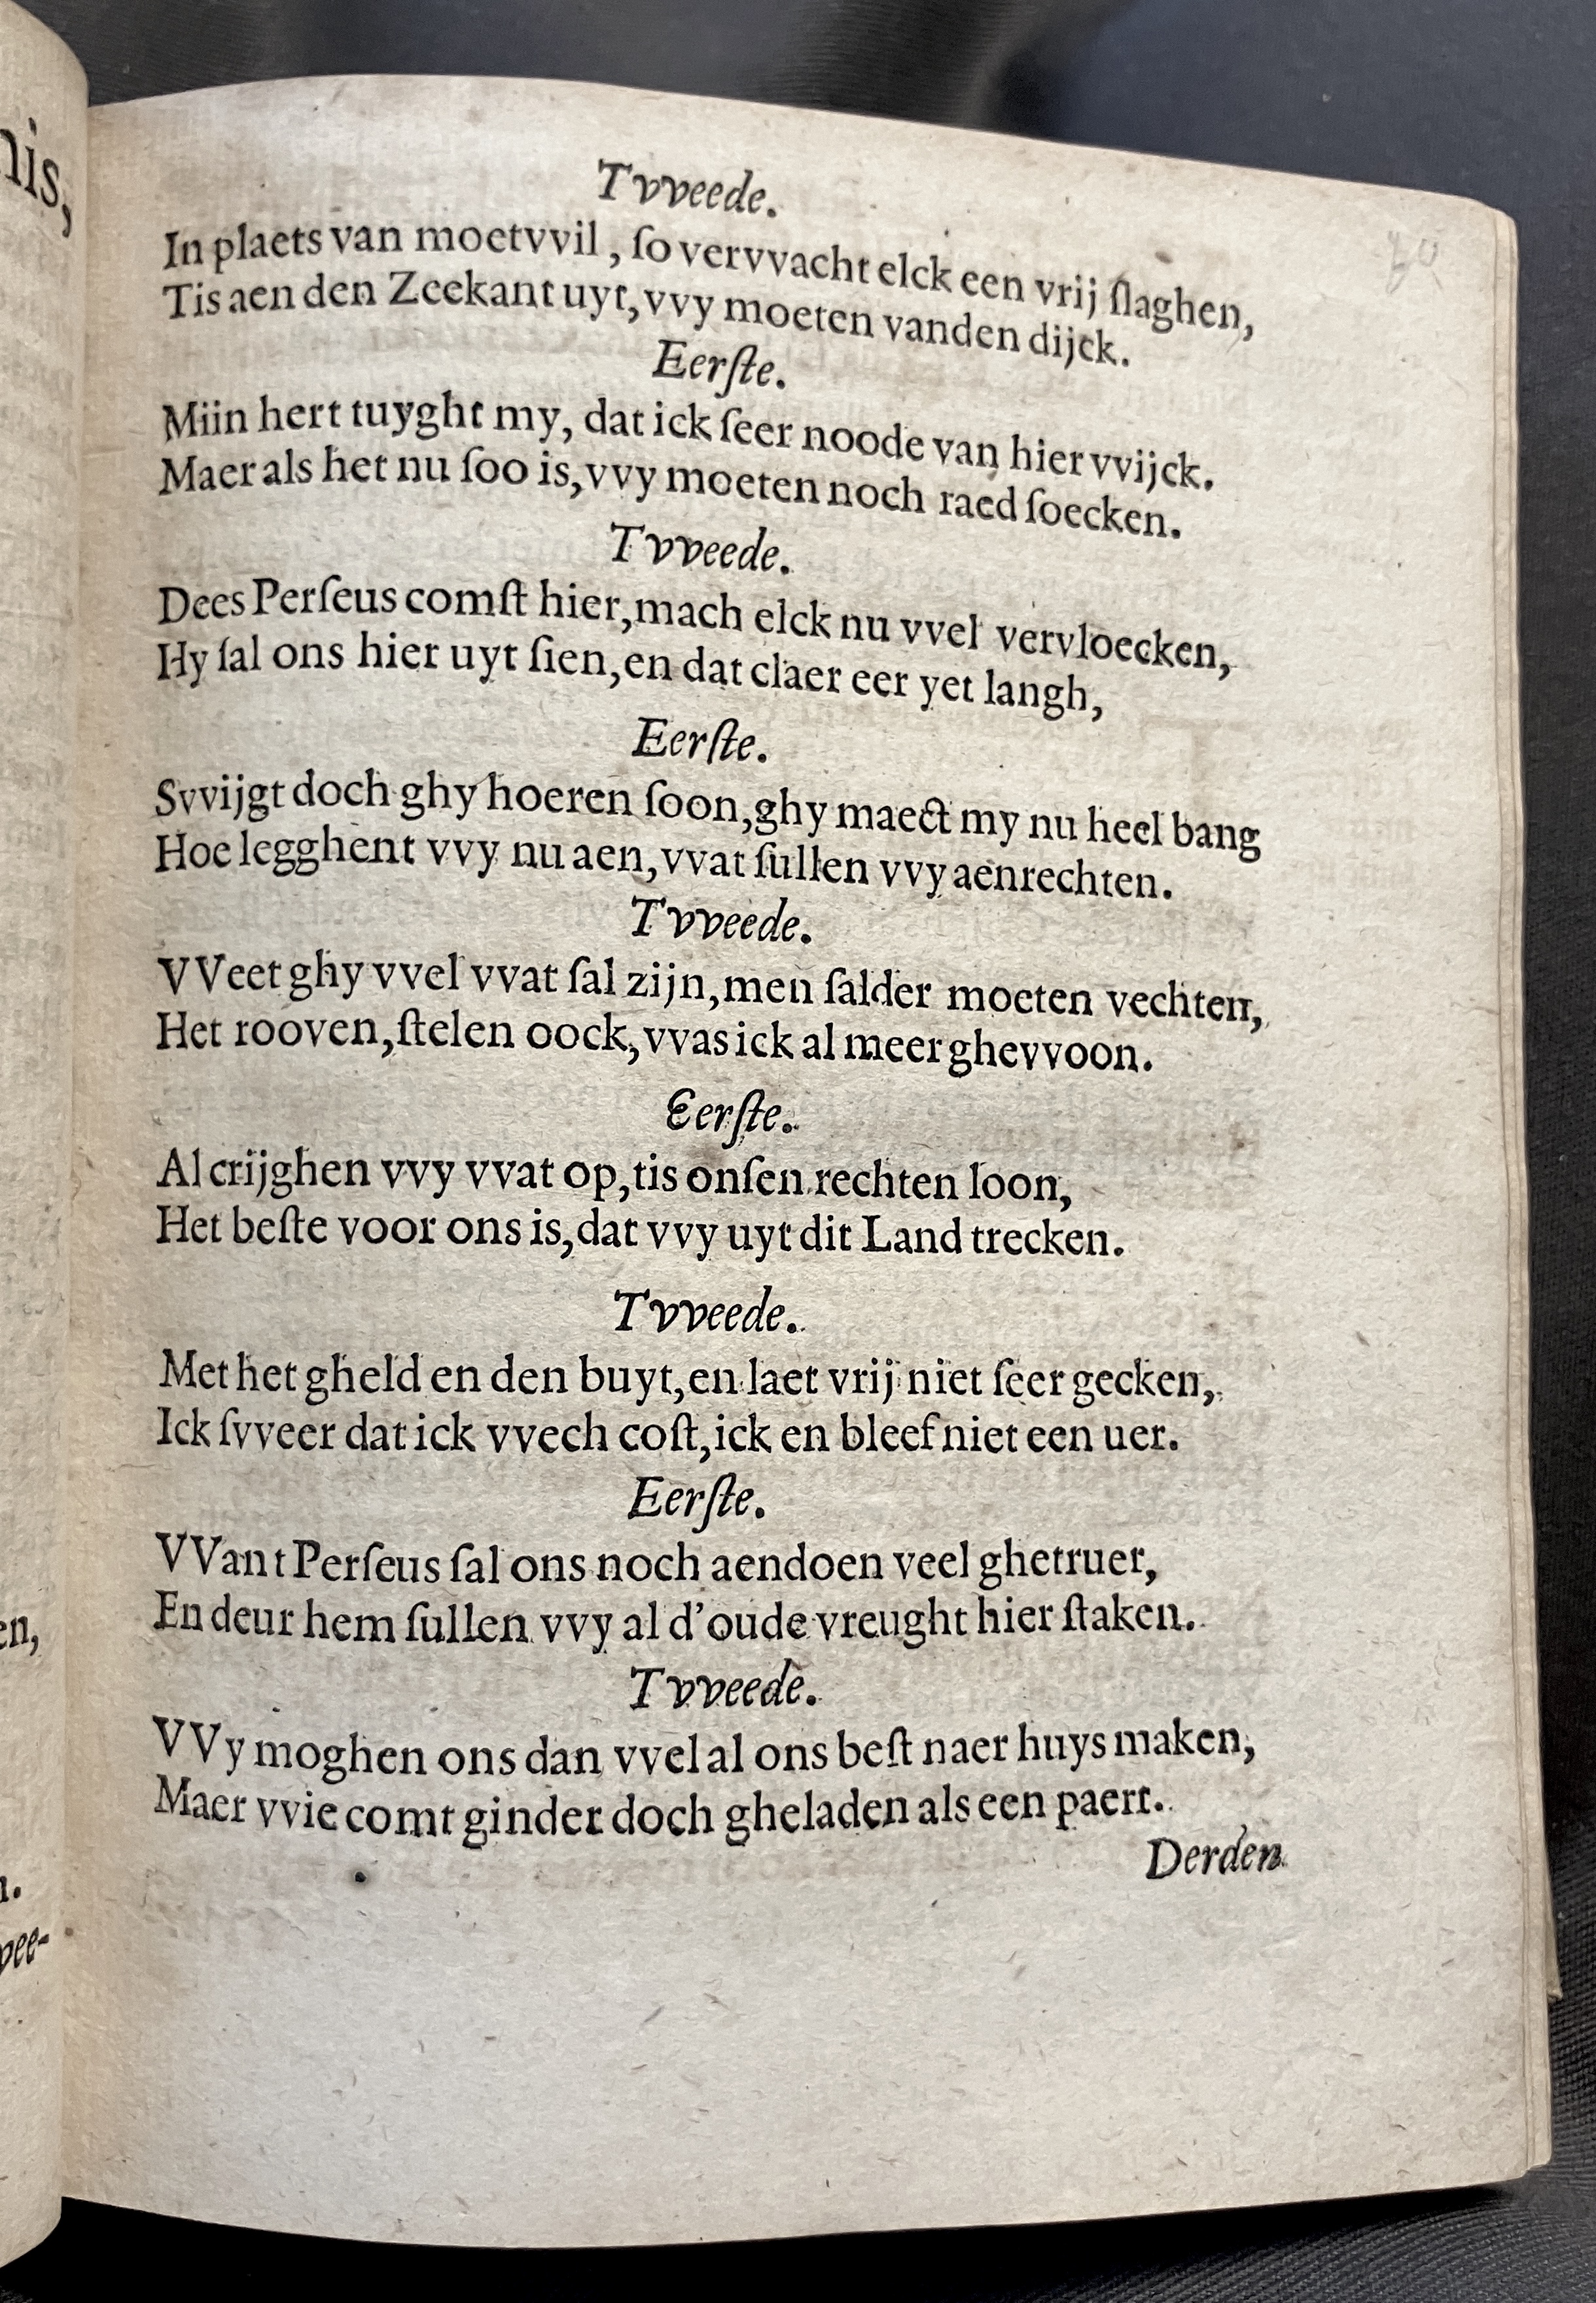 nis,
en,
n.
vvee-
40
Tvveede.
In plaets van moetvvil, ſo vervvacht elck een vrij ſlaghen,
Tis aen den Zeekant uyt, vvy moeten vanden dijck.
Eerſte.
Miin hert tuyght my, dat ick ſeer noode van hier vvijck.
Maer als het nu ſoo is, vvy moeten noch raed ſoecken.
Tvveede.
Dees Perſeus comſt hier, mach elck nu vvel vervloecken,
Hy ſal ons hier uyt ſien, en dat claer eer yet langh,
Eerſte.
Svvijgt doch ghy hoeren ſoon, ghy maect my nu heel bang
Hoe legghent vvy nu aen, vvat ſullen vvy aenrechten.
Tvveede.
VVeet ghy vvel vvat ſal zijn, men ſalder moeten vechten,
Het rooven, ſtelen oock, vvas ick al meer ghevvoon.
Eerſte.
Al crijghen vvy vvat op, tis onſen rechten loon,
Het beſte voor ons is, dat vvy uyt dit Land trecken.
Tvveede.
Met het gheld en den buyt, en laet vrij niet ſeer gecken,
Ick ſvveer dat ick vvech coſt, ick en bleef niet een uer.
Eerſte.
VVant Perſeus ſal ons noch aendoen veel ghetruer,
En deur hem ſullen vvy al d'oude vreught hier ſtaken.
Tvveede.
VVy moghen ons dan vvel al ons beſt naer huys maken,
Maer vvie comt ginder doch gheladen als een paert.
Derden